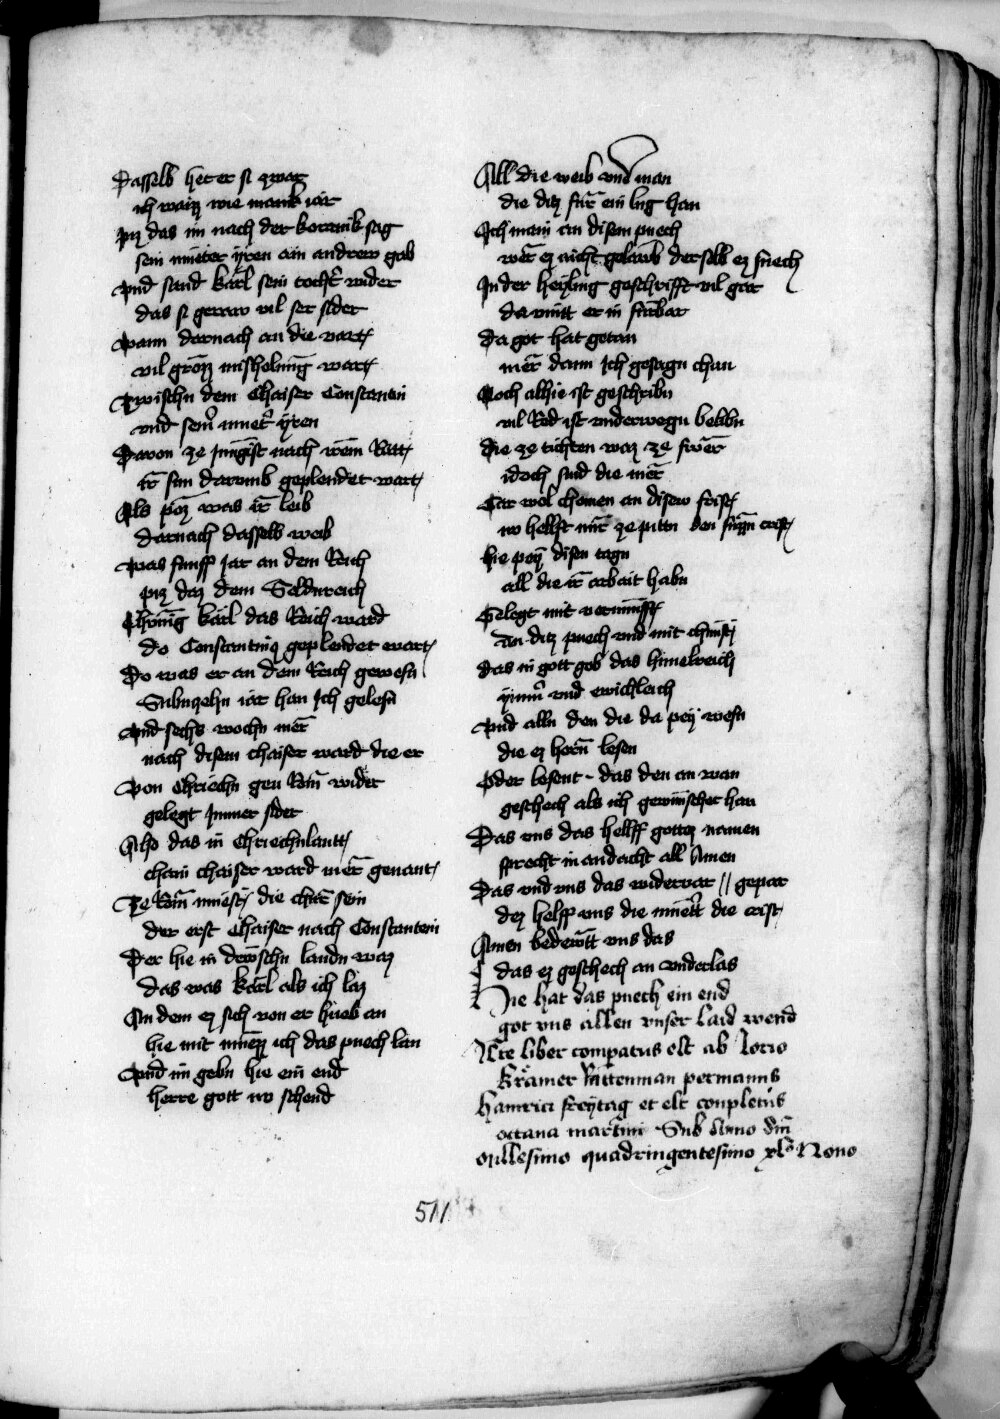 Dasselb het er si zwar
ich waiz wie manik iar
Piz das im nach der koronik sag
sein mueter yren ain andrew gab
Vnd sand karl sein tochter wider
das si geraw vil ser sider
Wann darnach an die vart
vil grozz mishelung wart
Zwischn dem Chaiser Constantin
vnd seiner mueter yren
Davon ze jungist nach irem Ratt
ir sun darumb geplendet wart
Als pöz was ir leib
darnach dasselb weib
Was funff Jar an dem Reich
piz daz dem Seldnreich
Chünig karl das Reich ward
do Constantinus geplendet wart
Do was er an dem Reich gewesn
Subnzehn iar han Ich gelesn
Vnd sechs wochn mer
nach disem chaiser ward die er
Von Chriechn gen Rom wider
gelegt Jmmer sider
Also das in Chriechnlantt
chain chaiser ward mer genant
Ze Rom muest die chür sein
der erst Chaiser nach Constantein
Der hie in dewtschn landn waz
das was karl als ich laz
An dem ez sich von er hueb an
hie mit muezz ich das puech lan
Vnd im gebn hie ein end
herre gott vo schend
All die weib vnd man
die ditz für ein lug han
Ich main an disem puech
wer ez nicht gelaub derselb ez suech
In der heyling geschrifft vil gar
da vintt er in fürbar
Da got hat getan
mer dann Ich gesagn chan
Noch alhie ist geschribn
vil Red ist vnderwegn belibn
Die ze tichten waz ze swer
idoch sind die mer
Gar wol chomen an disew frist
nv helfft mir ze pittn den süzzn crist
hie pey disen tagn
all die ir arbait habn
Gelegt mit vernunfft
an ditz puech vnd mit chunst
Das in gott geb das himelreich
ymmer vnd ewichleich
Vnd alln den die da pey wesn
die ez hörn lesen
Oder lesent das den an wan
geschech als ich gewünschet han
Das vns das helff gottez namen
sprecht in andacht all Amen
Das vnd vns das widervar // gepar
dez helff vns die muett die crist
Amen bedewtt vns das
das ez geschech an vnderlas
Hie hat das puech ein end
got vns allen vnser laid wend
Iste liber compatus est ab Iorio
Krämer permanus
Hainrici freytag et est conpletus
octaua martini Sub Anno dni
Millesimo quadringentesimo xlº Nono
511